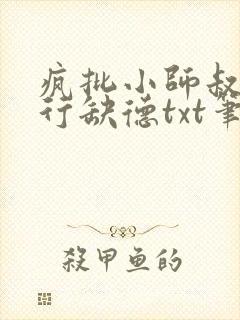 疯批小师叔
行缺德txt筆
殺甲鱼的